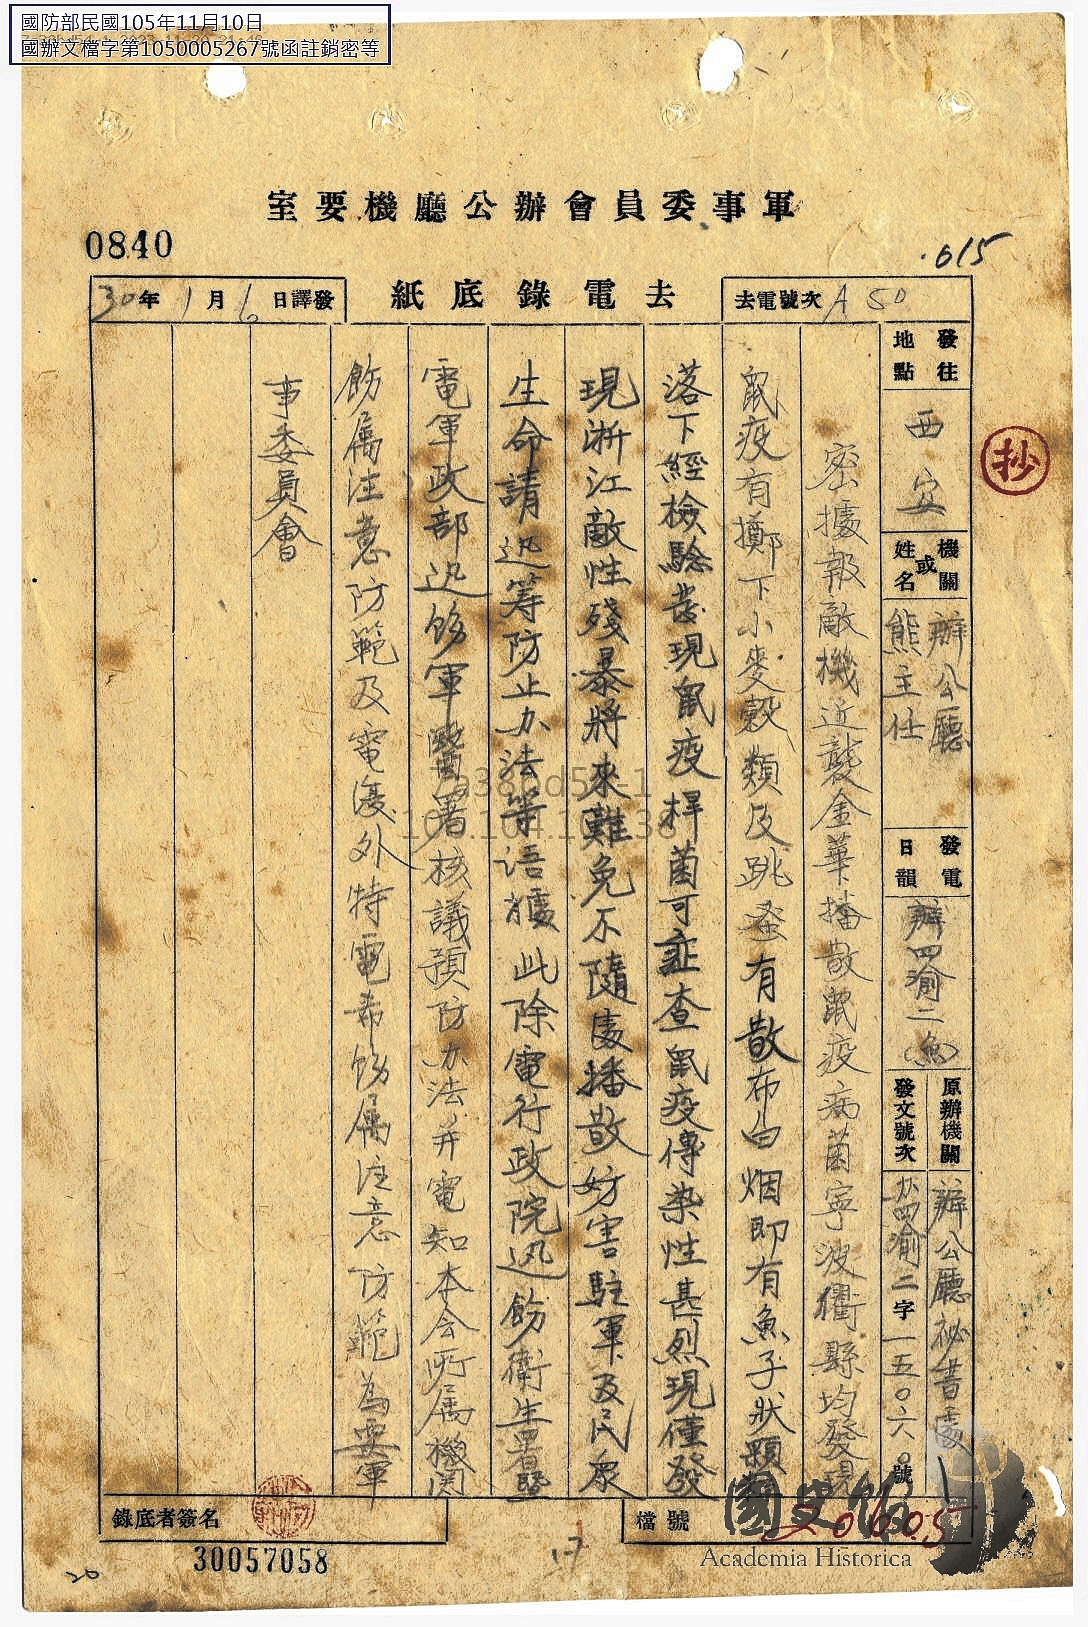 國防部民國105年11月10日
國辦文檔字第1050005267號函註銷密等
軍事委員會辦公廳機要室
0840
.615
去電號次 A 50
去電錄底紙
30年1月6日譯發
發往地點
西安
機關或姓名
辦公廳
熊主任
發電日韻
辦四渝二(魚)
原辦機關
辦公廳祕書處
發文號次
办四渝二字一五〇六〇號
抄
密據報敵機近襲金華播散鼠疫病菌寧波衢縣均發現
鼠疫有擲下小麥穀類及跳蚤有散布白烟即有魚子狀顆粒
落下經檢驗發現鼠疫桿菌可証查鼠疫傳染性甚烈現僅發
現浙江敵性殘暴將來難免不隨處播散妨害駐軍及民眾
生命請迅籌防止办法等语據此除電行政院迅飭衛生署暨
電軍政部迅飭軍醫署核議預防办法并電知本会所属機関
飭属注意防範及電復外特電希飭属注意防範為要軍
事委員會
錄底者簽名
檔號
20605
30057058
20
17
7a38bd54-1
國史館
Academia Historica